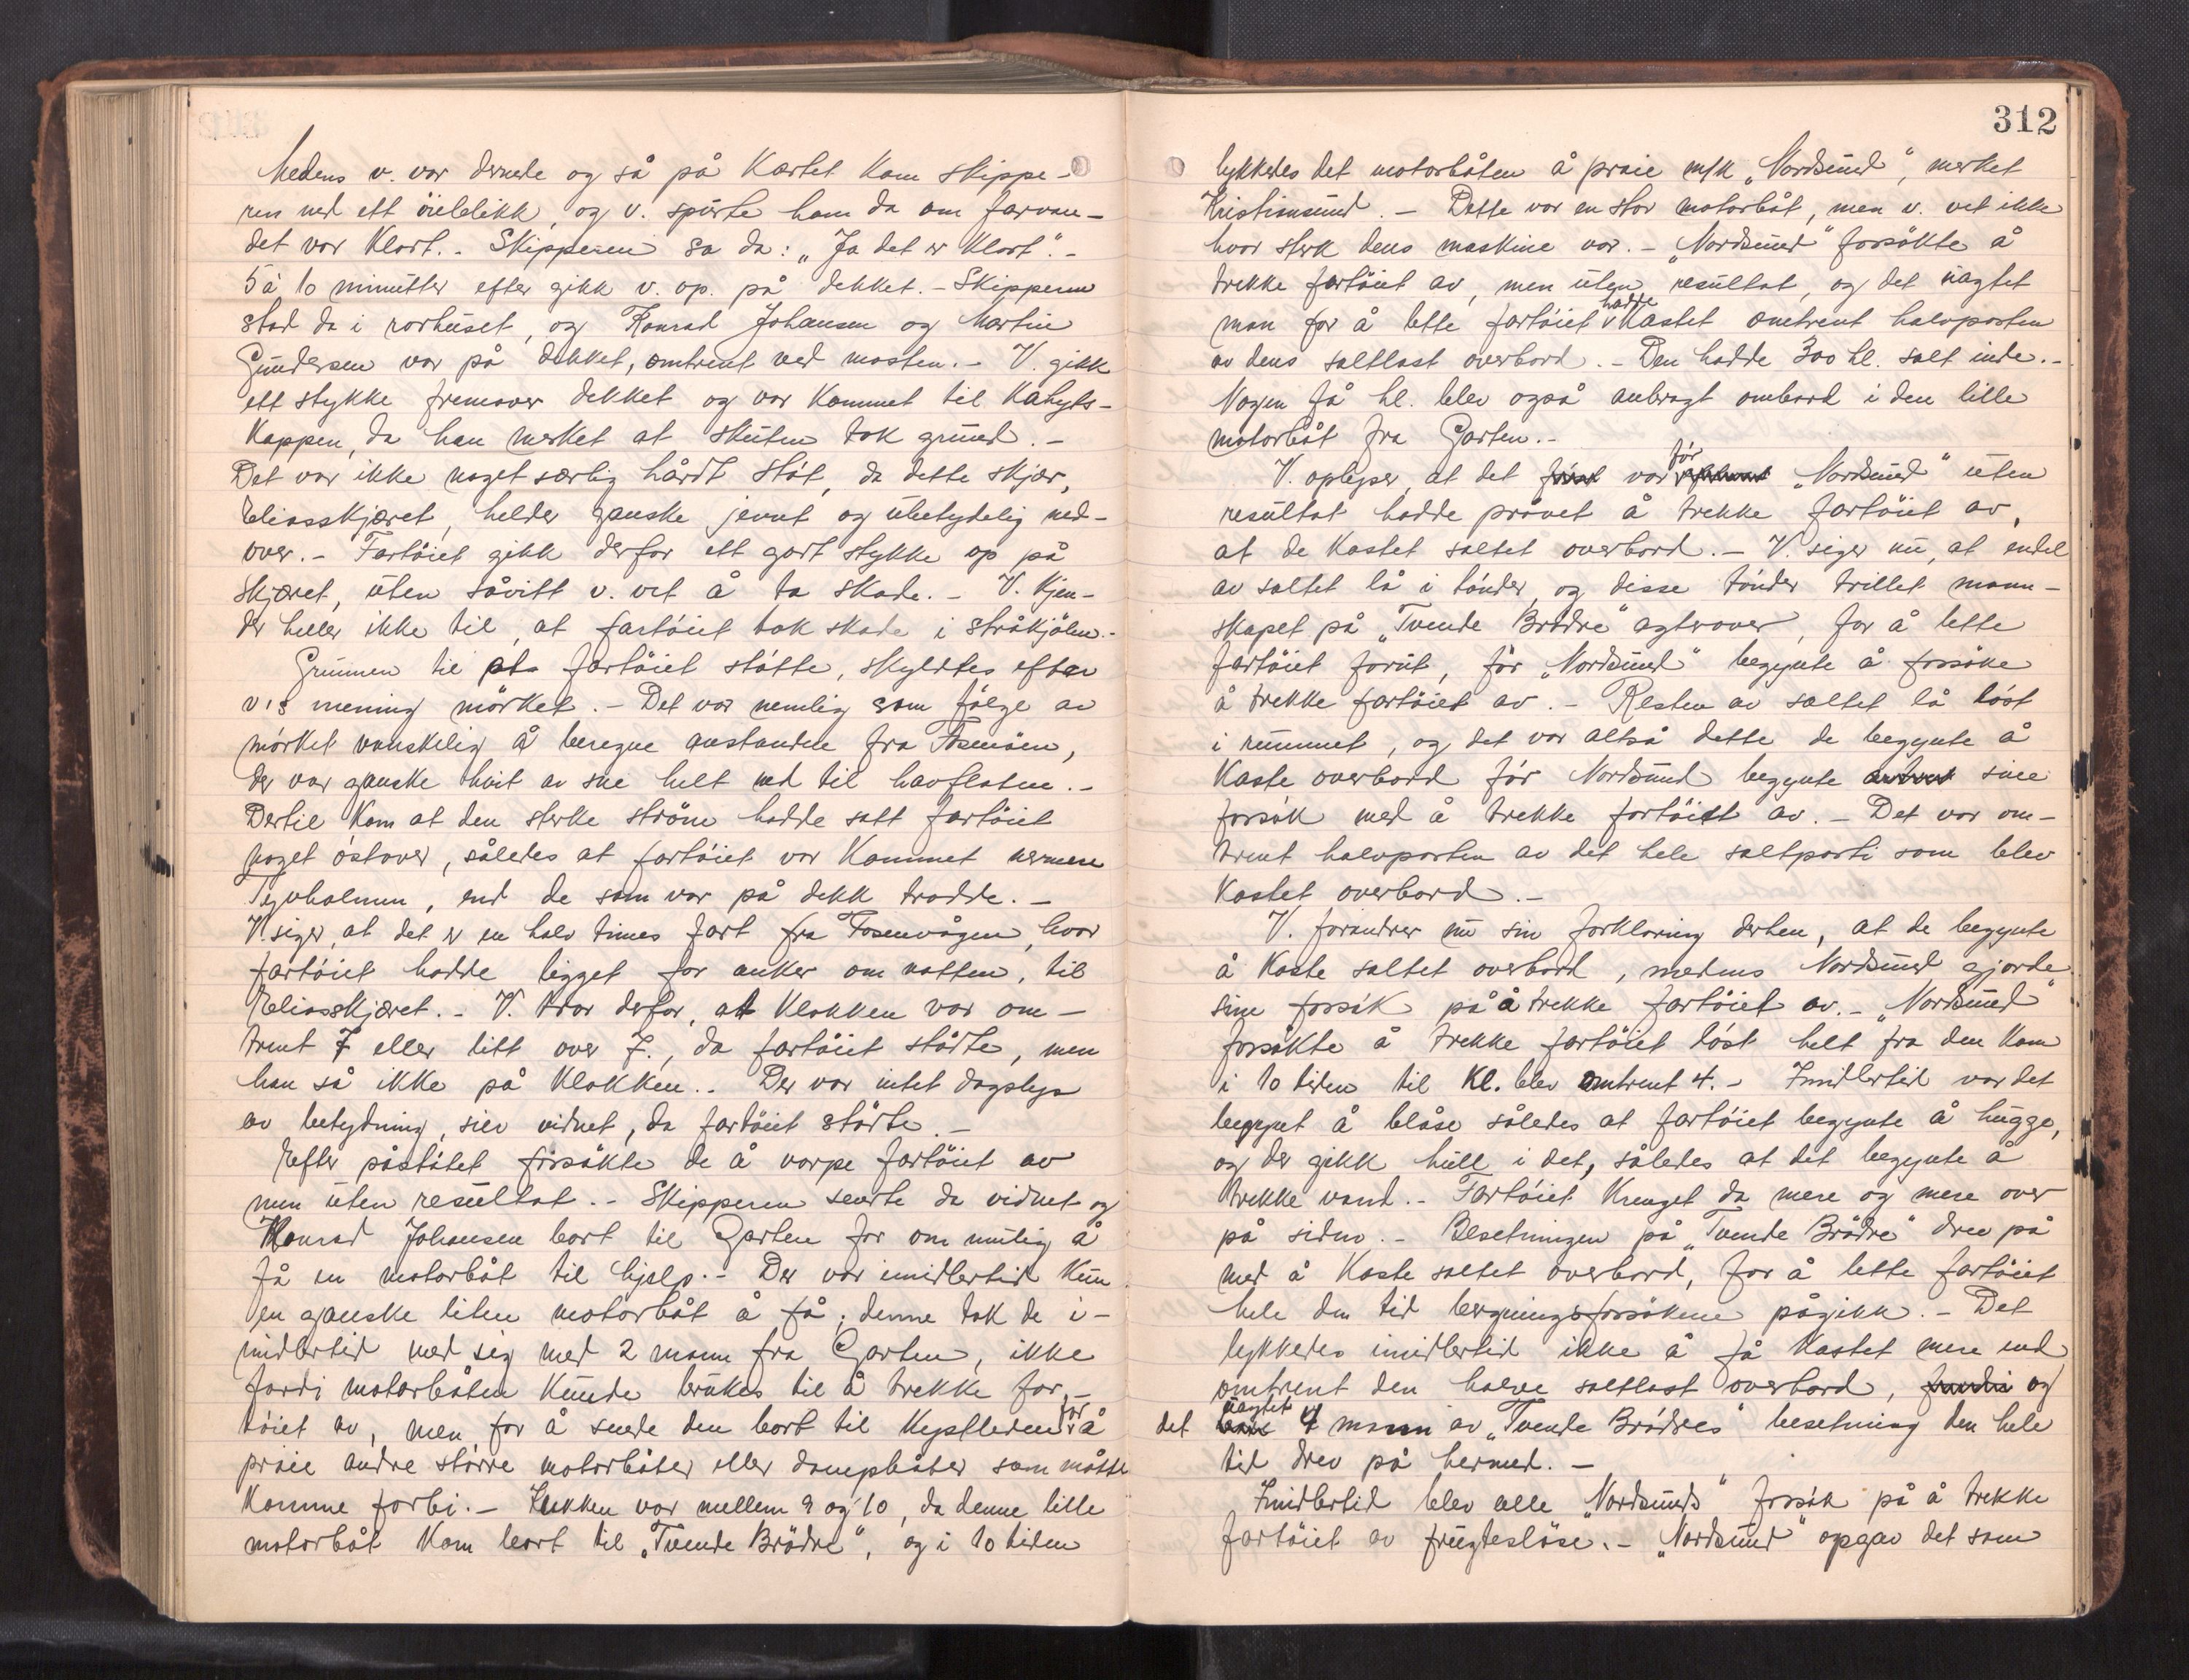 Medens v. var dernede og så på Kartet kom skippe-
ren ned ett öieblikk, og v. spurte ham da om farvan-
det var klart. - Skipperen sa da: „Ja det er klart“. -
5 à 10 minutter efter gikk v. op. på dekket. - Skipperen
stod da i rorhuset, og Konrad Johansen og Martin
Gundersen var på dekket, omtrent ved masten. - V. gikk
ett stykke fremover dekket og var kommet til Kahyts-
kappen, da han merket at skuten tok grund. -
Det var ikke noget særlig hårdt stöt, da dette skjær,
Eliasskjæret, helder ganske jevnt og ubetydelig ned-
over. - Fartöiet gikk derfor ett godt stykke op på
skjæret, uten såvitt v. vet å ta skade. - V. kjen-
der heller ikke til, at fartöiet tok skade i stråkjölen. -
Grunnen til at fartöiet stötte, skyldtes efter
v's mening mörket. - Det var nemlig som fölge av
mörket vanskelig å beregne avstanden fra Fosenöen,
der var ganske hvit av sne helt ned til havflaten. -
Dertil kom at den sterke ström hadde satt fartöiet
noget östover, således at fartöiet var kommet nermere
Tyvholmen, end de som var på dekk trodde. -
V. siger, at det er en halv times fart fra Fosenvågen, hvor
fartöiet hadde ligget for anker om natten, til
Eliasskjæret. - V. tror derfor, at klokken var om-
trent 7 eller litt over 7., da fartöiet stötte, men
han så ikke på klokken. - Der var intet dagslys
av betydning, siev vidnet, da fartöiet stötte. -
Efter påstötet forsökte de å varpe fartöiet av
men uten resultat. - Skipperen sendte da vidnet og
Konrad Johansen bort til Garten for om mulig å
få en motorbåt til hjelp. - Der var imidlertid kun
en ganske liten motorbåt å få; denne tok de i-
midlertid med sig med 2 mann fra Garten, ikke
fordi motorbåten kunde brukes til å trekke far-
töiet av, men for å sende den bort til Kystleden for å
praie andre större motorbåter eller dampbåter som måtte
komme forbi. - Klokken var mellem 9 og 10, da denne lille
motorbåt kom bort til „Tvende Brödre“, og i 10 tiden
312
lykkedes det motorbåten å praie m/k „Nordsund“, merket
Kristiansund. - Dette var en stor motorbåt, men v. vet ikke
hvor sterk dens maskine var. - „Nordsund“ forsökte å
trekke fartöiet av, men uten resultat, og det uagtet
man for å lette fartöiet hadde kastet omtrent halvparten
av dens saltlast overbord. - Den hadde 300 hl. salt inde. -
Nogen få hl. blev også anbragt ombord i den lille
motorbåt fra Garten. -
V. oplyser, at det först var för „Nordsund“ uten
resultat hadde prövet å trekke fartöiet av,
at de kastet saltet overbord. - V. siger nu, at endel
av saltet lå i tönder, og disse tönder trillet mann-
skapet på „Tvende Brödre“ agterover, for å lette
fartöiet forut, för „Nordsund“ begynte å forsöke
å trekke fartöiet av. - Resten av saltet lå löst
i rummet, og det var altså dette de begynte å
kaste overbord för Nordsund begynte sine
forsök med å trekke fartöiet av. - Det var om-
trent halvparten av det hele saltparti som blev
kastet overbord. -
V. forandrer nu sin forklaring derhen, at de begynte
å kaste saltet overbord, medens Nordsund gjorde
sine forsök på å trekke fartöiet av. - „Nordsund“
forsökte å trekke fartöiet löst helt fra den kom
i 10 tiden til kl. blev omtrent 4. - Imidlertid var det
begynt å blåse således at fartöiet begynte å hugge,
og der gikk hull i det, således at det begynte å
trekke vand. - Fartöiet krenget da mere og mere over
på siden. - Besetningen på „Tvende Brödre“ drev på
med å kaste saltet overbord, for å lette fartöiet
hele den tid bergningsforsökene pågikk. - Det
lykkedes imidlertid ikke å få kastet mere end
omtrent den halve saltlast overbord, fordi og
det uagtet 4 mann av „Tvende Brödres“ besetning den hele
tid drev på hermed. -
Imidlertid blev alle „Nordsunds“ forsök på å trekke
fartöiet av frugteslöse. - „Nordsund“ opgav det som